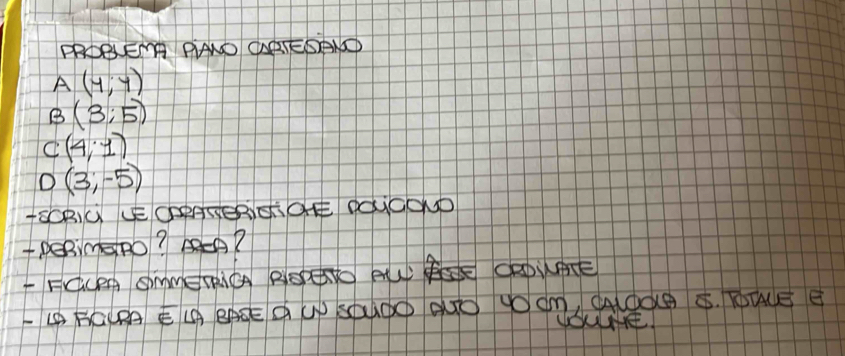 PROBLEMA PIANO CARTESIANO
A (4; 4)
B (3; 5)
C (4; 1)
D (3; -5)
- SCRIVI LE CARATTERISTICHE POLIGONO
- PERIMETRO? AREA?
- FIGURA SIMMETRICA RISPETTO ALL' ASSE ORDINATE
- LA FIGURA È LA BASE DI UN SOLIDO ALTO 40 cm, CALCOLA S. TOTALE E
VOLUME.